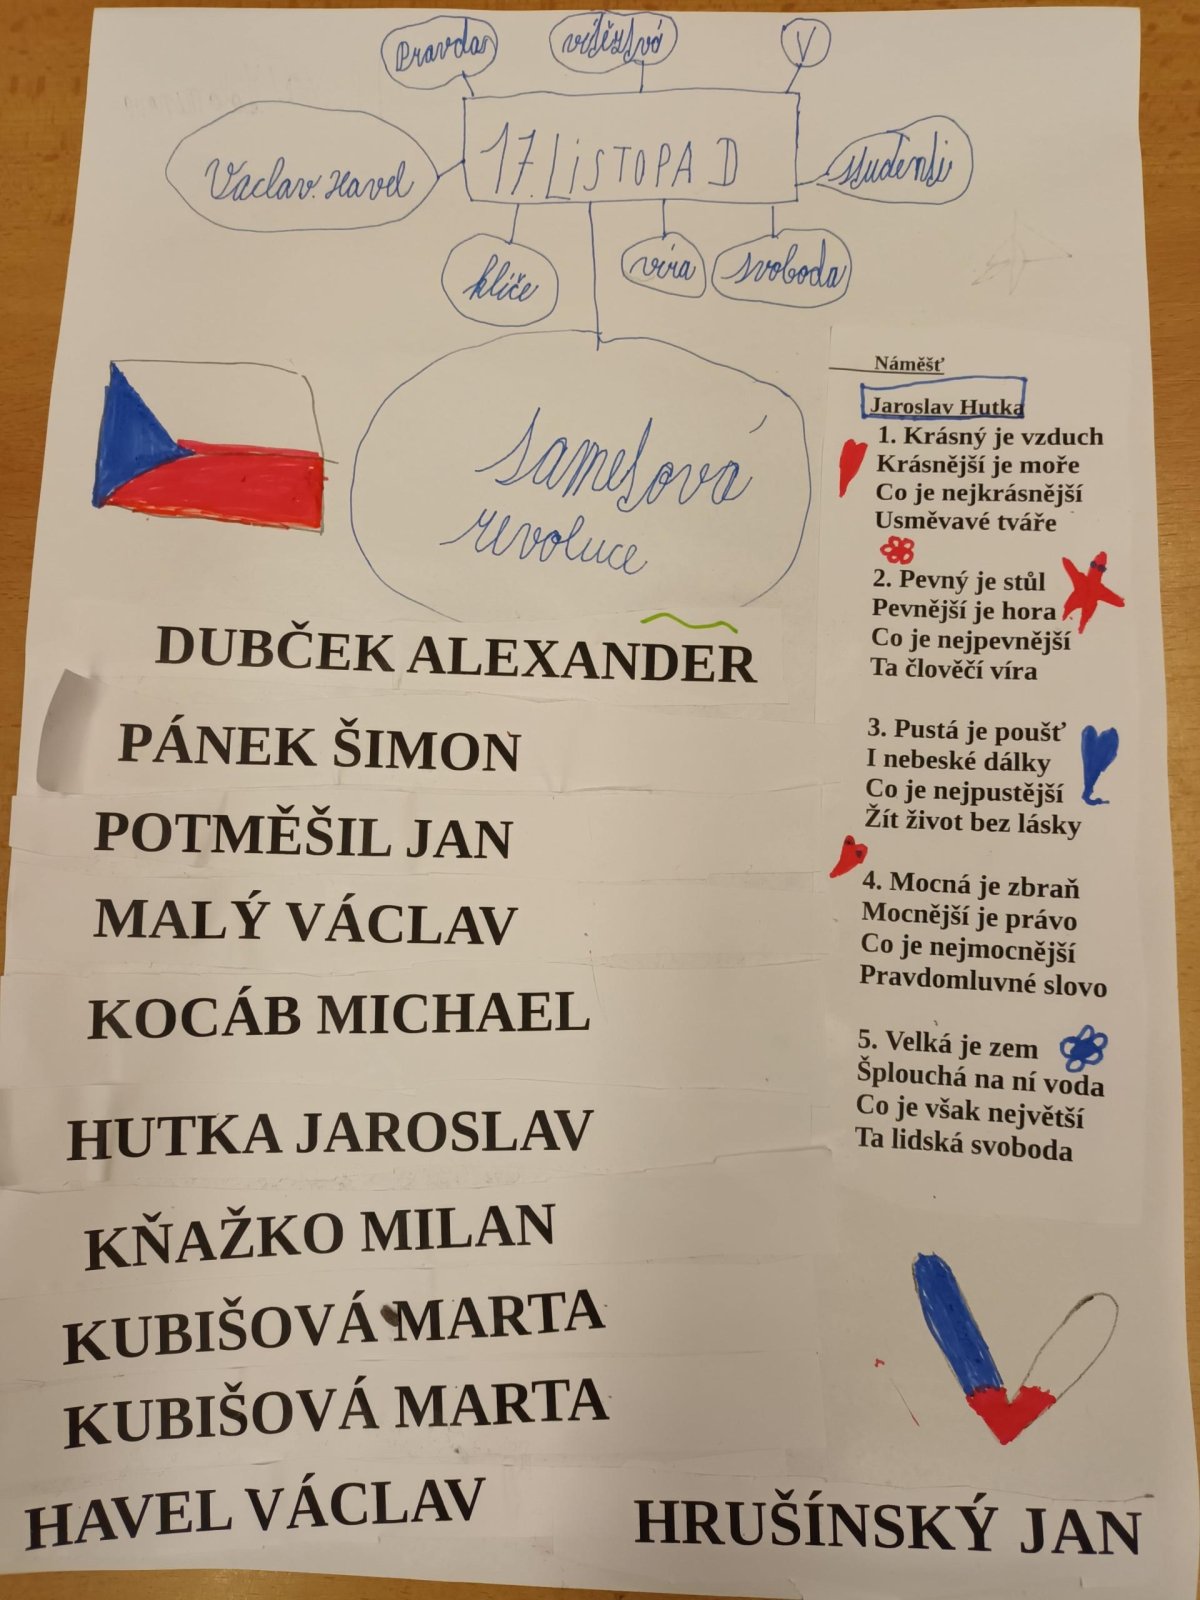 Pravda
vítězství
V
Václav Havel
17. LiSTOPAD
studenti
klíče
víra
svoboda
sametová
revoluce
DUBČEK ALEXANDER
PÁNEK ŠIMON
POTMĚŠIL JAN
MALÝ VÁCLAV
KOCÁB MICHAEL
HUTKA JAROSLAV
KŇAŽKO MILAN
KUBIŠOVÁ MARTA
KUBIŠOVÁ MARTA
HAVEL VÁCLAV
HRUŠÍNSKÝ JAN
Náměšť
Jaroslav Hutka
1. Krásný je vzduch
Krásnější je moře
Co je nejkrásnější
Usměvavé tváře
2. Pevný je stůl
Pevnější je hora
Co je nejpevnější
Ta člověčí víra
3. Pustá je poušť
I nebeské dálky
Co je nejpustější
Žít život bez lásky
4. Mocná je zbraň
Mocnější je právo
Co je nejmocnější
Pravdomluvné slovo
5. Velká je zem
Šplouchá na ní voda
Co je však největší
Ta lidská svoboda